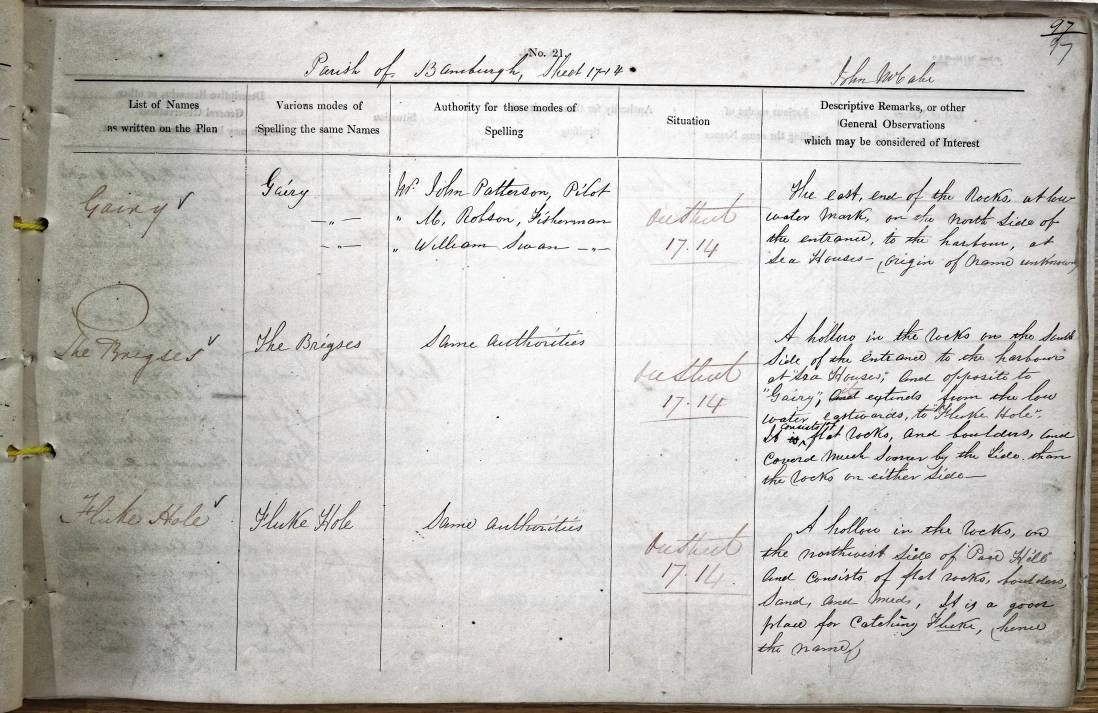 97
97
No. 21.
Parish of Bamburgh, Sheet 17-14.
John McCabe
List of Names
as written on the Plan
Various modes of
Spelling the same Names
Authority for those modes of
Spelling
Situation
Descriptive Remarks, or other
General Observations
which may be considered of Interest
Gairy ✓
Gairy
—〃—
—〃—
Mr. John Patterson, Pilot
〃 M. Robson, Fisherman
〃 William Swan —〃—
On Sheet
17.14
The east, end of the Rocks, at low
water mark, on the north side of
the entrance, to the harbour, at
Sea Houses — (origin of name unknown)
The Brigses ✓
The Brigses
Same authorities
On Sheet
17.14
A hollow in the rocks on the south
side of the entrance to the harbour
at "Sea Houses", and opposite to
"Gairy", and extends from the low
water, eastwards, to "Fluke Hole".
It is consists of flat rocks, and boulders, and
coverd much sooner by the tide than
the rocks on either side —
Fluke Hole ✓
Fluke Hole
Same authorities
On Sheet
17.14
A hollow in the rocks, on
the northwest side of Hill
and consists of flat rocks, boulders,
sand, and mud, It is a good
place for catching Fluke, (hence
the name)